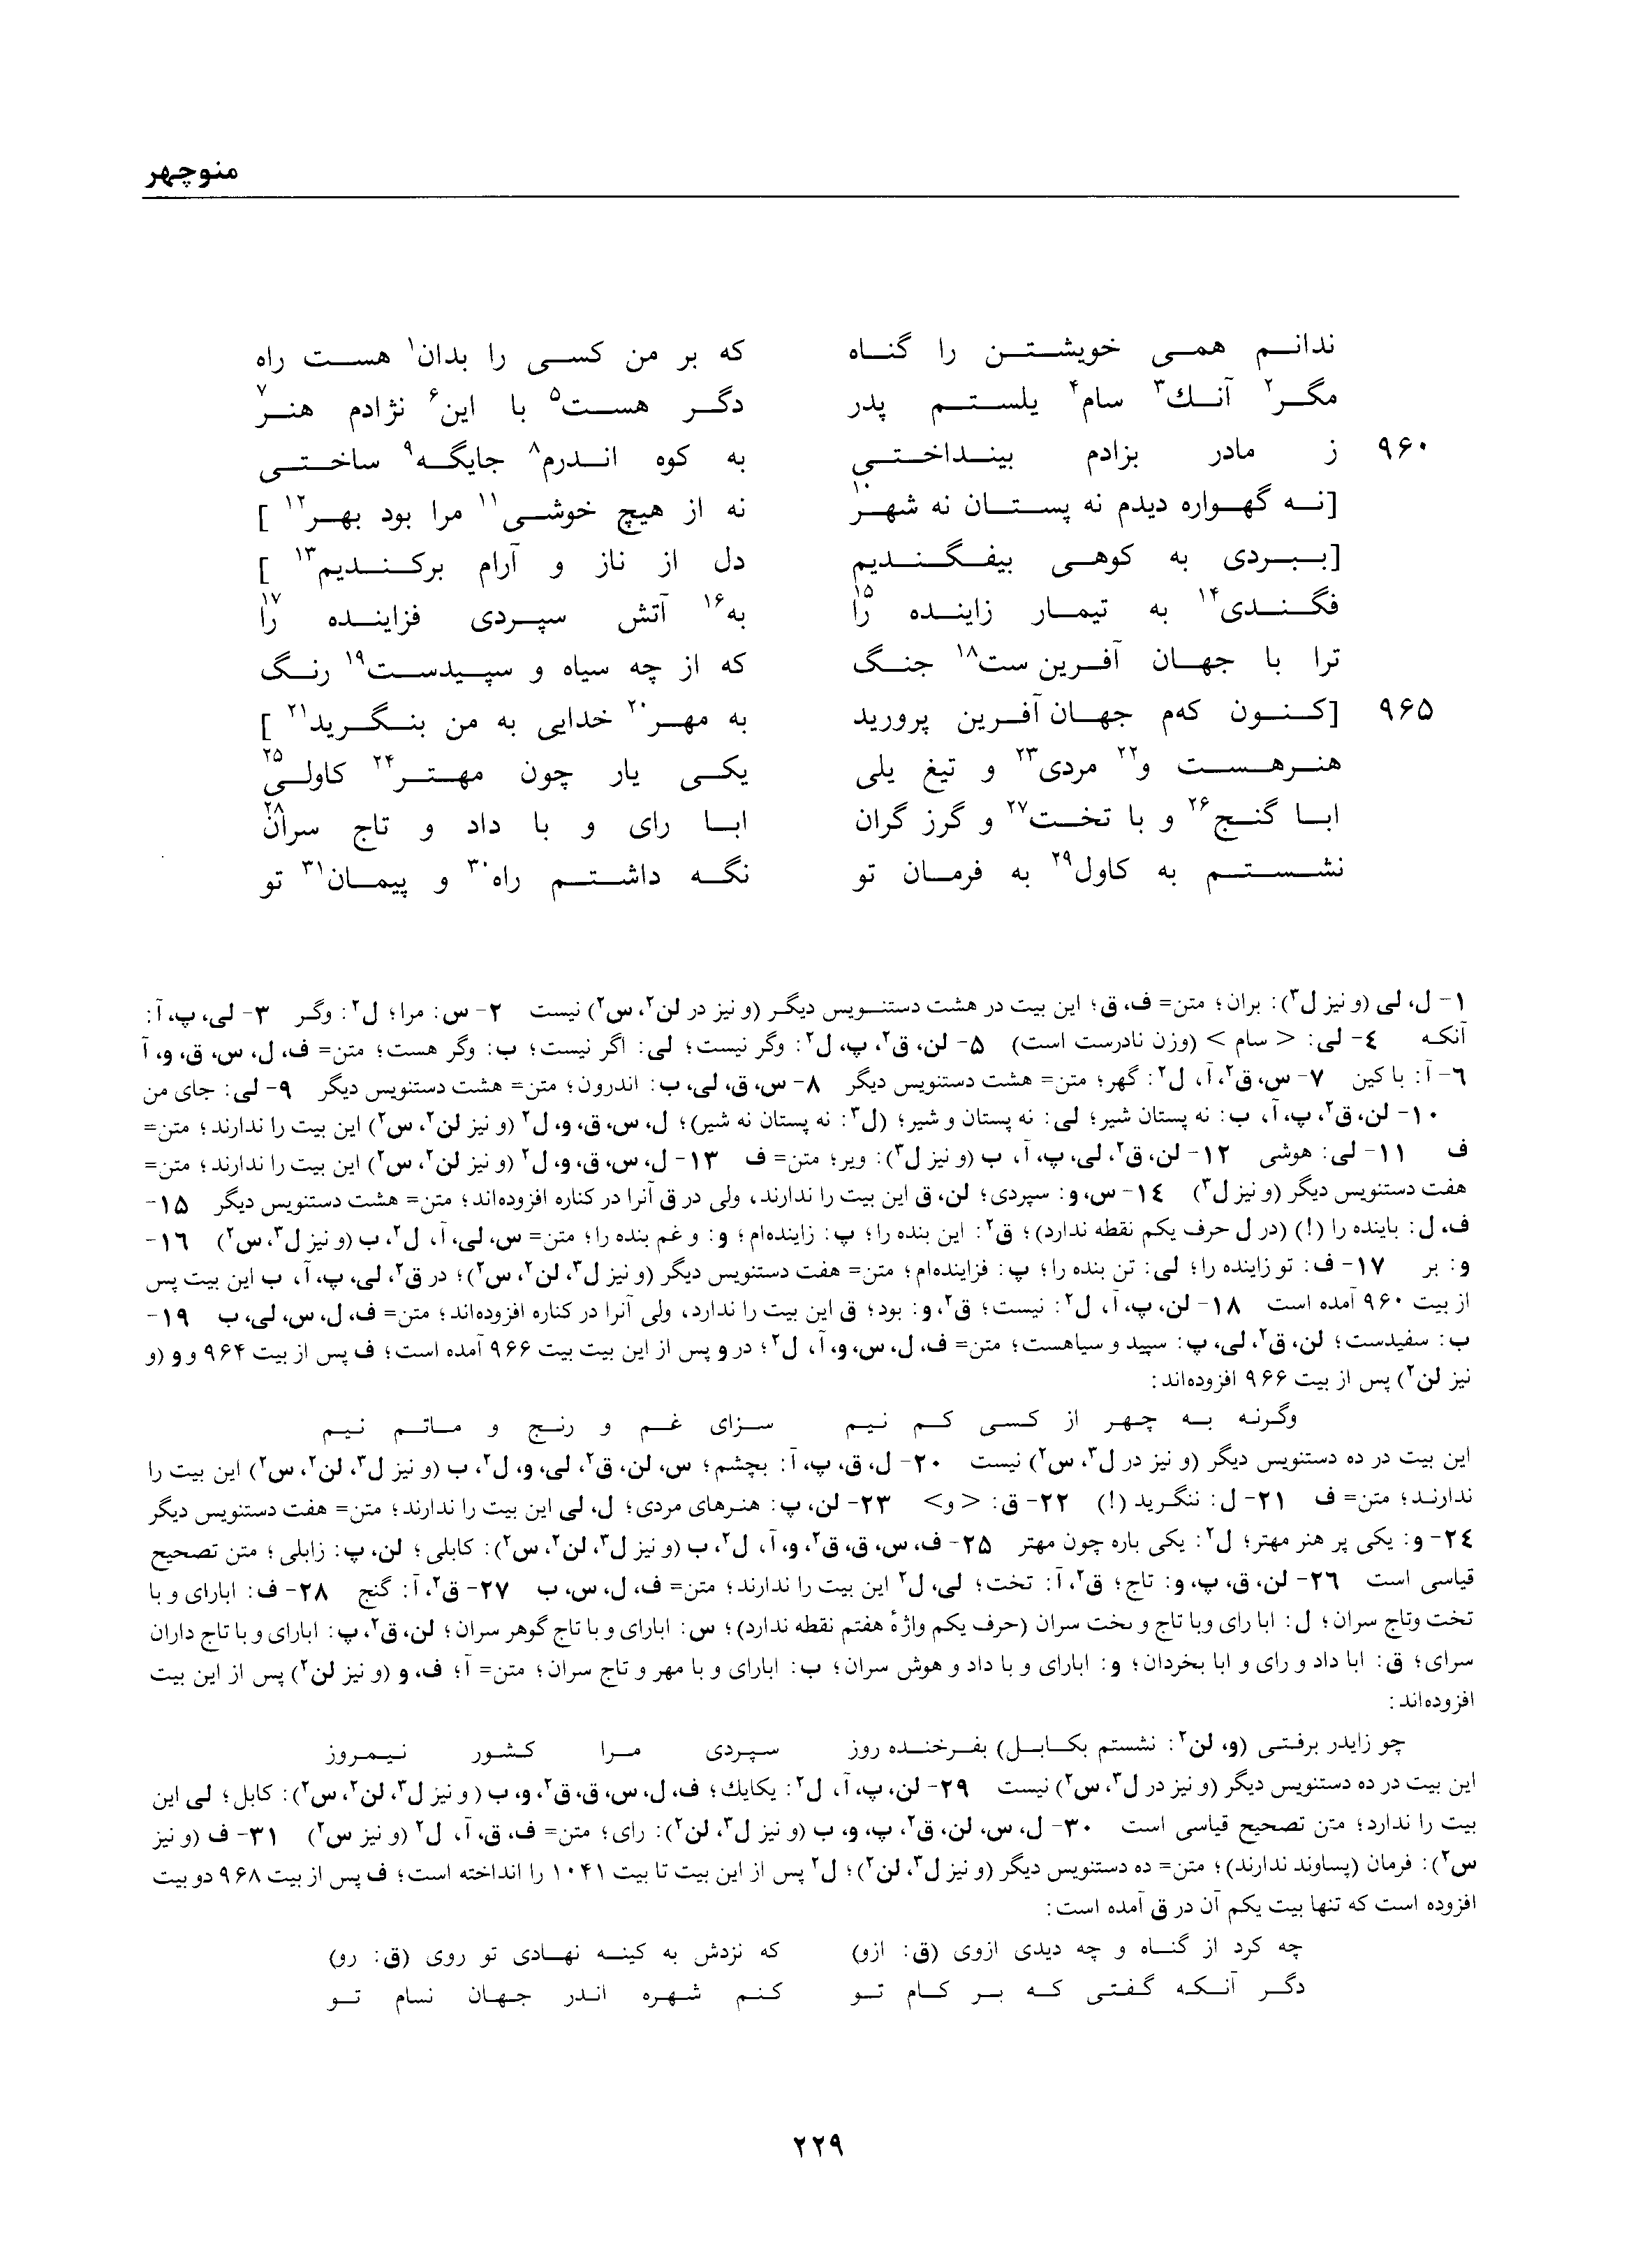 منوچهر
ندانم همی خویشتن را گناه که بر من کسی را بدان۱ هست راه
مگر۲ آنك۳ سام۴ یلستم پدر دگر هست۵ با این۶ نژادم هنر۷
۹۶۰ ز مادر بزادم بینداختی به کوه اندرم۸ جایگه۹ ساختی
[نه گهواره دیدم نه پستان نه شهر۱۰ نه از هیچ خوشی۱۱ مرا بود بهر۱۲ ]
[ببردی به کوهی بیفگندیم دل از ناز و آرام برکندیم۱۳ ]
فگندی۱۴ به تیمار زاینده را۱۵ به۱۶ آتش سپردی فزاینده را۱۷
ترا با جهان آفرین ست۱۸ جنگ که از چه سیاه و سپیدست۱۹ رنگ
۹۶۵ [کنون که‌م جهان آفرین پرورید به مهر۲۰ خدایی به من بنگرید۲۱ ]
هنرهست و۲۲ مردی۲۳ و تیغ یلی یکی یار چون مهتر۲۴ کاولی۲۵
ابا گنج۲۶ و با تخت۲۷ و گرز گران ابا رای و با داد و تاج سران۲۸
نشستم به کاول۲۹ به فرمان تو نگه داشتم راه۳۰ و پیمان۳۱ تو
۱- ل، لی (و نیز ل۳): بران؛ متن= ف، ق؛ این بیت در هشت دستنویس دیگر (و نیز در لن۲، س۲) نیست ۲- س: مرا؛ ل۲: وگر ۳- لی، پ، آ:
آنکه ۴- لی: < سام > (وزن نادرست است) ۵- لن، ق۲، پ، ل۲: وگر نیست؛ لی: اگر نیست؛ ب: وگر هست؛ متن= ف، ل، س، ق، و، آ
۶- آ: با کین ۷- س، ق۲، آ، ل۲: گهر؛ متن= هشت دستنویس دیگر ۸- س، ق، لی، ب: اندرون؛ متن= هشت دستنویس دیگر ۹- لی: جای من
۱۰- لن، ق۲، پ، آ، ب: نه پستان شیر؛ لی: نه پستان و شیر؛ (ل۳: نه پستان نه شیر)؛ ل، س، ق، و، ل۲ (و نیز لن۲، س۲) این بیت را ندارند؛ متن=
ف ۱۱- لی: هوشی ۱۲- لن، ق۲، لی، پ، آ، ب (و نیز ل۳): ویر؛ متن= ف ۱۳- ل، س، ق، و، ل۲ (و نیز لن۲، س۲) این بیت را ندارند؛ متن=
هفت دستنویس دیگر (و نیز ل۳) ۱۴- س، و: سپردی؛ لن، ق این بیت را ندارند، ولی در ق آنرا در کناره افزوده‌اند؛ متن= هشت دستنویس دیگر ۱۵-
ف، ل: باینده را (!) (در ل حرف یکم نقطه ندارد)؛ ق۲: این بنده را؛ پ: زاینده‌ام؛ و: و غم بنده را؛ متن= س، لی، آ، ل۲، ب (و نیز ل۳، س۲) ۱۶-
و: بر ۱۷- ف: تو زاینده را؛ لی: تن بنده را؛ پ: فزاینده‌ام؛ متن= هفت دستنویس دیگر (و نیز ل۳، لن۲، س۲)؛ در ق۲، لی، پ، آ، ب این بیت پس
از بیت ۹۶۰ آمده است ۱۸- لن، پ، آ، ل۲: نیست؛ ق۲، و: بود؛ ق این بیت را ندارد، ولی آنرا در کناره افزوده‌اند؛ متن= ف، ل، س، لی، ب ۱۹-
ب: سفیدست؛ لن، ق۲، لی، پ: سپید و سیاهست؛ متن= ف، ل، س، و، آ، ل۲؛ در و پس از این بیت بیت ۹۶۶ آمده است؛ ف پس از بیت ۹۶۴ و و (و
نیز لن۲) پس از بیت ۹۶۶ افزوده‌اند:
وگرنه به چهر از کسی کم نیم سزای غم و رنج و ماتم نیم
این بیت در ده دستنویس دیگر (و نیز در ل۳، س۲) نیست ۲۰- ل، ق، پ، آ: بچشم؛ س، لن، ق۲، لی، و، ل۲، ب (و نیز ل۳، لن۲، س۲) این بیت را
ندارند؛ متن= ف ۲۱- ل: ننگرید (!) ۲۲- ق: < و> ۲۳- لن، پ: هنرهای مردی؛ ل، لی این بیت را ندارند؛ متن= هفت دستنویس دیگر
۲۴- و: یکی پر هنر مهتر؛ ل۲: یکی باره چون مهتر ۲۵- ف، س، ق، ق۲، و، آ، ل۲، ب (و نیز ل۳، لن۲، س۲): کابلی؛ لن، پ: زابلی؛ متن تصحیح
قیاسی است ۲۶- لن، ق، پ، و: تاج؛ ق۲، آ: تخت؛ لی، ل۲ این بیت را ندارند؛ متن= ف، ل، س، ب ۲۷- ق۲، آ: گنج ۲۸- ف: ابارای و با
تخت وتاج سران؛ ل: ابا رای وبا تاج و بخت سران (حرف یکم واژهٔ هفتم نقطه ندارد)؛ س: ابارای و با تاج گوهر سران؛ لن، ق۲، پ: ابارای و با تاج داران
سرای؛ ق: ابا داد و رای و ابا بخردان؛ و: ابارای و با داد و هوش سران؛ ب: ابارای و با مهر و تاج سران؛ متن= آ؛ ف، و (و نیز لن۲) پس از این بیت
افزوده‌اند:
چو زایدر برفتی (و، لن۲: نشستم بکابل) بفرخنده روز سپردی مرا کشور نیمروز
این بیت در ده دستنویس دیگر (و نیز در ل۳، س۲) نیست ۲۹- لن، پ، آ، ل۲: یکایك؛ ف، ل، س، ق، ق۲، و، ب ( و نیز ل۳، لن۲، س۲): کابل؛ لی این
بیت را ندارد؛ متن تصحیح قیاسی است ۳۰- ل، س، لن، ق۲، پ، و، ب (و نیز ل۳، لن۲): رای؛ متن= ف، ق، آ، ل۲ (و نیز س۲) ۳۱- ف (و نیز
س۲): فرمان (پساوند ندارند)؛ متن= ده دستنویس دیگر (و نیز ل۳، لن۲)؛ ل۲ پس از این بیت تا بیت ۱۰۴۱ را انداخته است؛ ف پس از بیت ۹۶۸ دو بیت
افزوده است که تنها بیت یکم آن در ق آمده است:
چه کرد از گناه و چه دیدی ازوی (ق: ازو) که نزدش به کینه نهادی تو روی (ق: رو)
دگر آنکه گفتی که بر کام تو کنم شهره اندر جهان نسام تو
۲۲۹